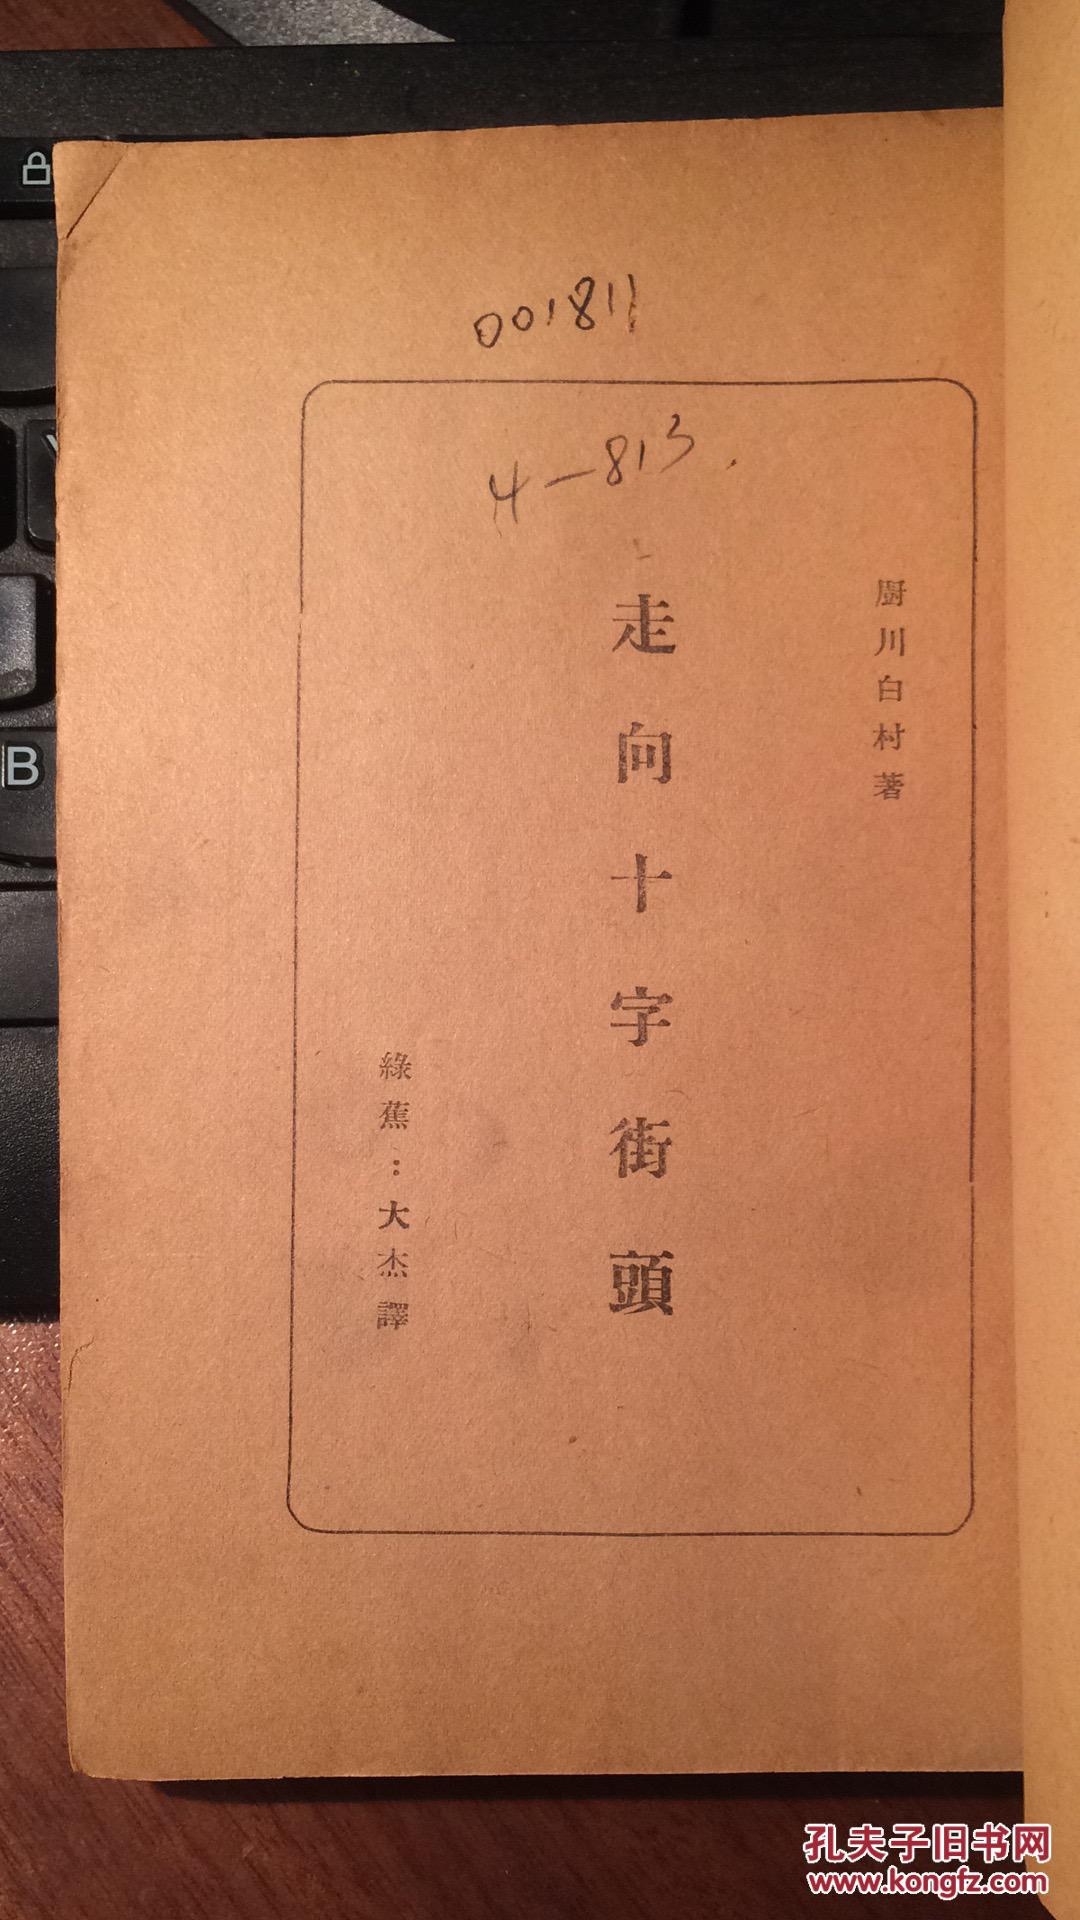 001811
4—813.
厨川白村著
走向十字街頭
綠蕉：大杰譯
B
孔夫子旧书网
www.kongfz.com